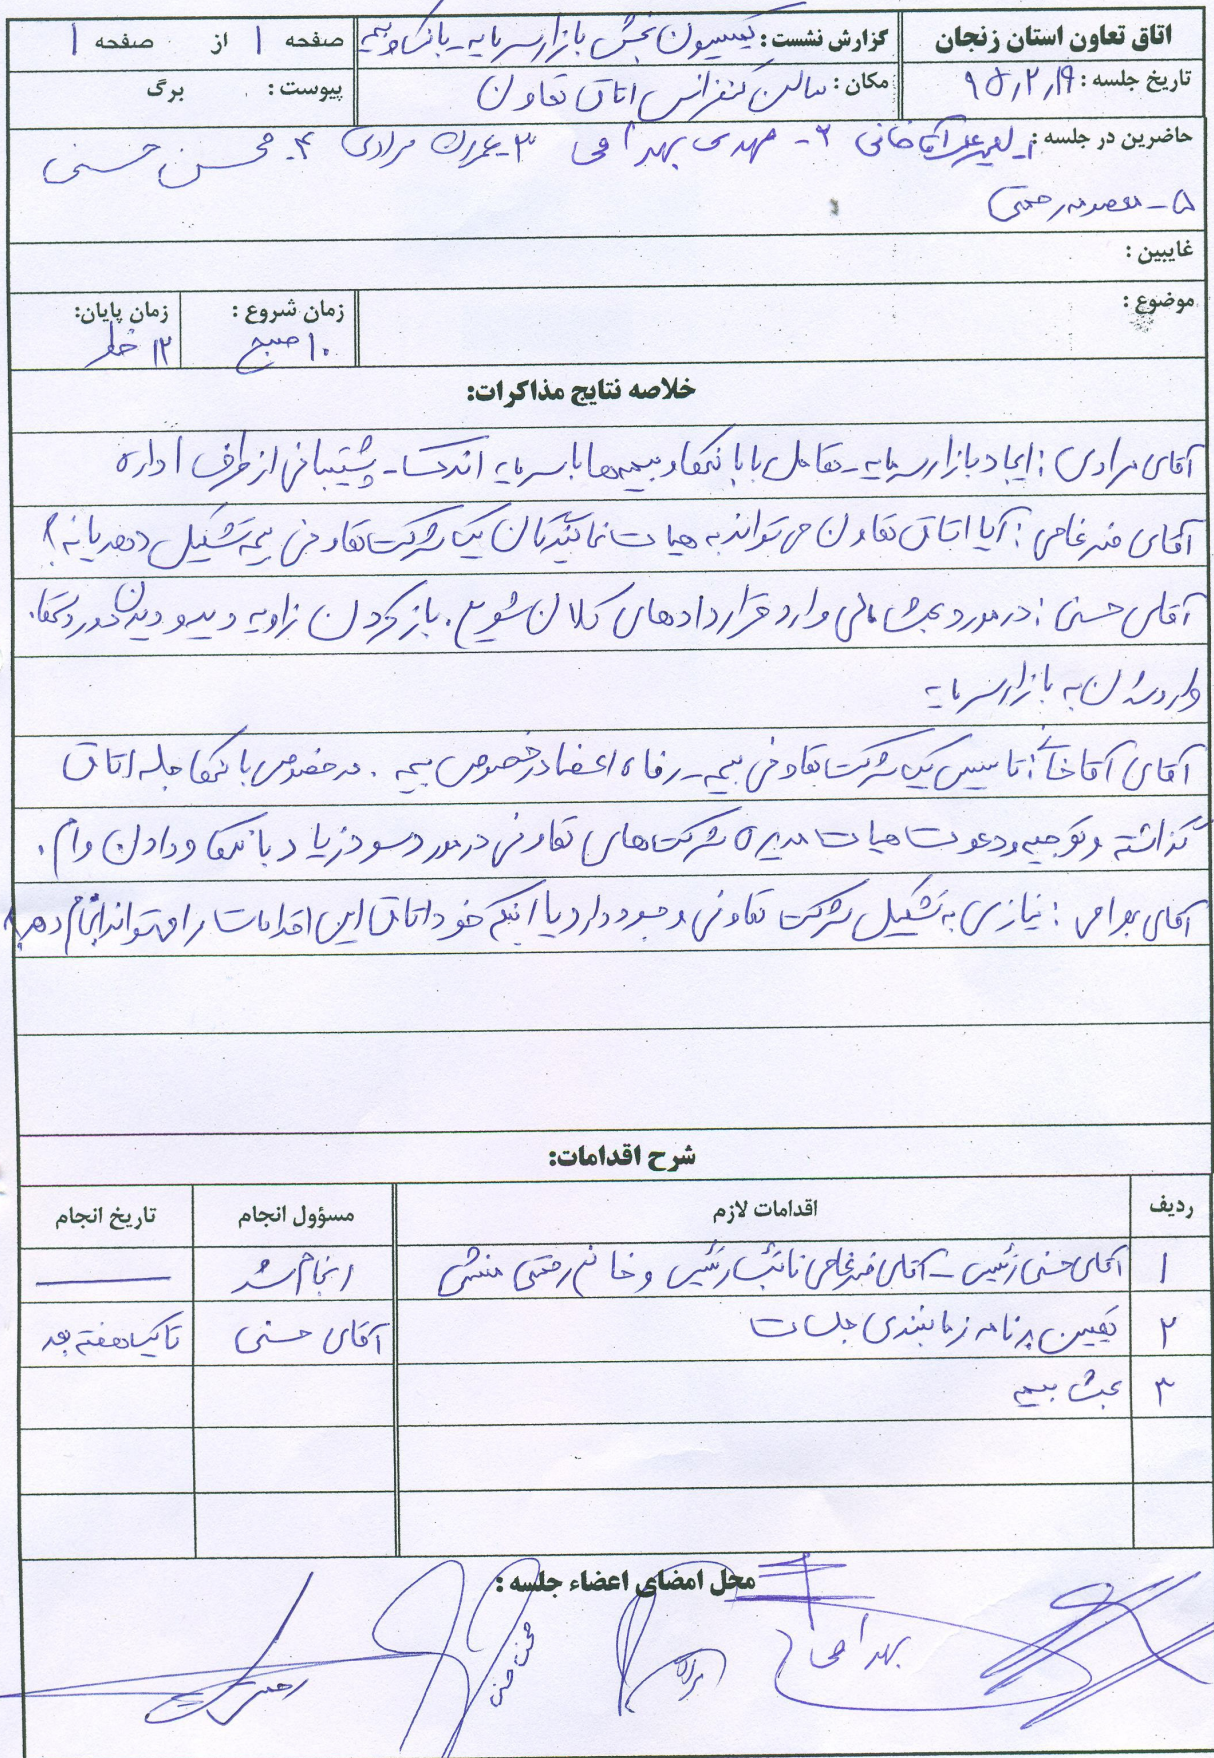 اتاق تعاون استان زنجان
گزارش نشست : کمیسیون بخش بازار سرمایه - بانک و بیمه
صفحه ۱ از صفحه ۱
تاریخ جلسه : ۹۵,۲,۱۹
مکان : سالن کنفرانس اتاق تعاون
پیوست : برگ
حاضرین در جلسه : ۱- آقاخانی ۲- مهدی بهرامی ۳- مرادی ۴- محسن حسنی
۵- معصومه رحمتی
غایبین :
موضوع :
زمان شروع :
زمان پایان:
۱۰ صبح
۱۲ ظهر
خلاصه نتایج مذاکرات:
آقای مرادی : ایجاد بازار سرمایه - تعامل با بانکها و بیمه‌ها با سرمایه اندک - پشتیبانی از طرف اداره
آقای ضرغامی : آیا اتاق تعاون می تواند به هیات نمایندگان یک شرکت تعاونی بیمه تشکیل دهد یا نه؟
آقای حسنی : در مورد بحث مالی وارد قراردادهای کلان شویم . باز کردن زاویه دید و دیدن
وارد شدن به بازار سرمایه
آقای آقاخانی : تاسیس یک شرکت تعاونی بیمه - رفاه اعضا در خصوص بیمه . در خصوص بانکها جلسه اتاق
گذاشته و توجیه و دعوت هیات مدیره شرکت های تعاونی در مورد سود زیاد بانکها و دادن وام .
آقای بهرامی : نیازی به تشکیل شرکت تعاونی وجود دارد یا اینکه خود اتاق این اقدامات را میتواند انجام دهد؟
شرح اقدامات:
ردیف
اقدامات لازم
مسؤول انجام
تاریخ انجام
۱ آقای حسنی رئیس - آقای ضرغامی نائب رئیس و خانم رحمتی منشی
انجام شد
۲ تعیین برنامه زمانبندی جلسات
آقای حسنی
تا یک هفته بعد
۳ بحث بیمه
محل امضای اعضاء جلسه :
بهرامی